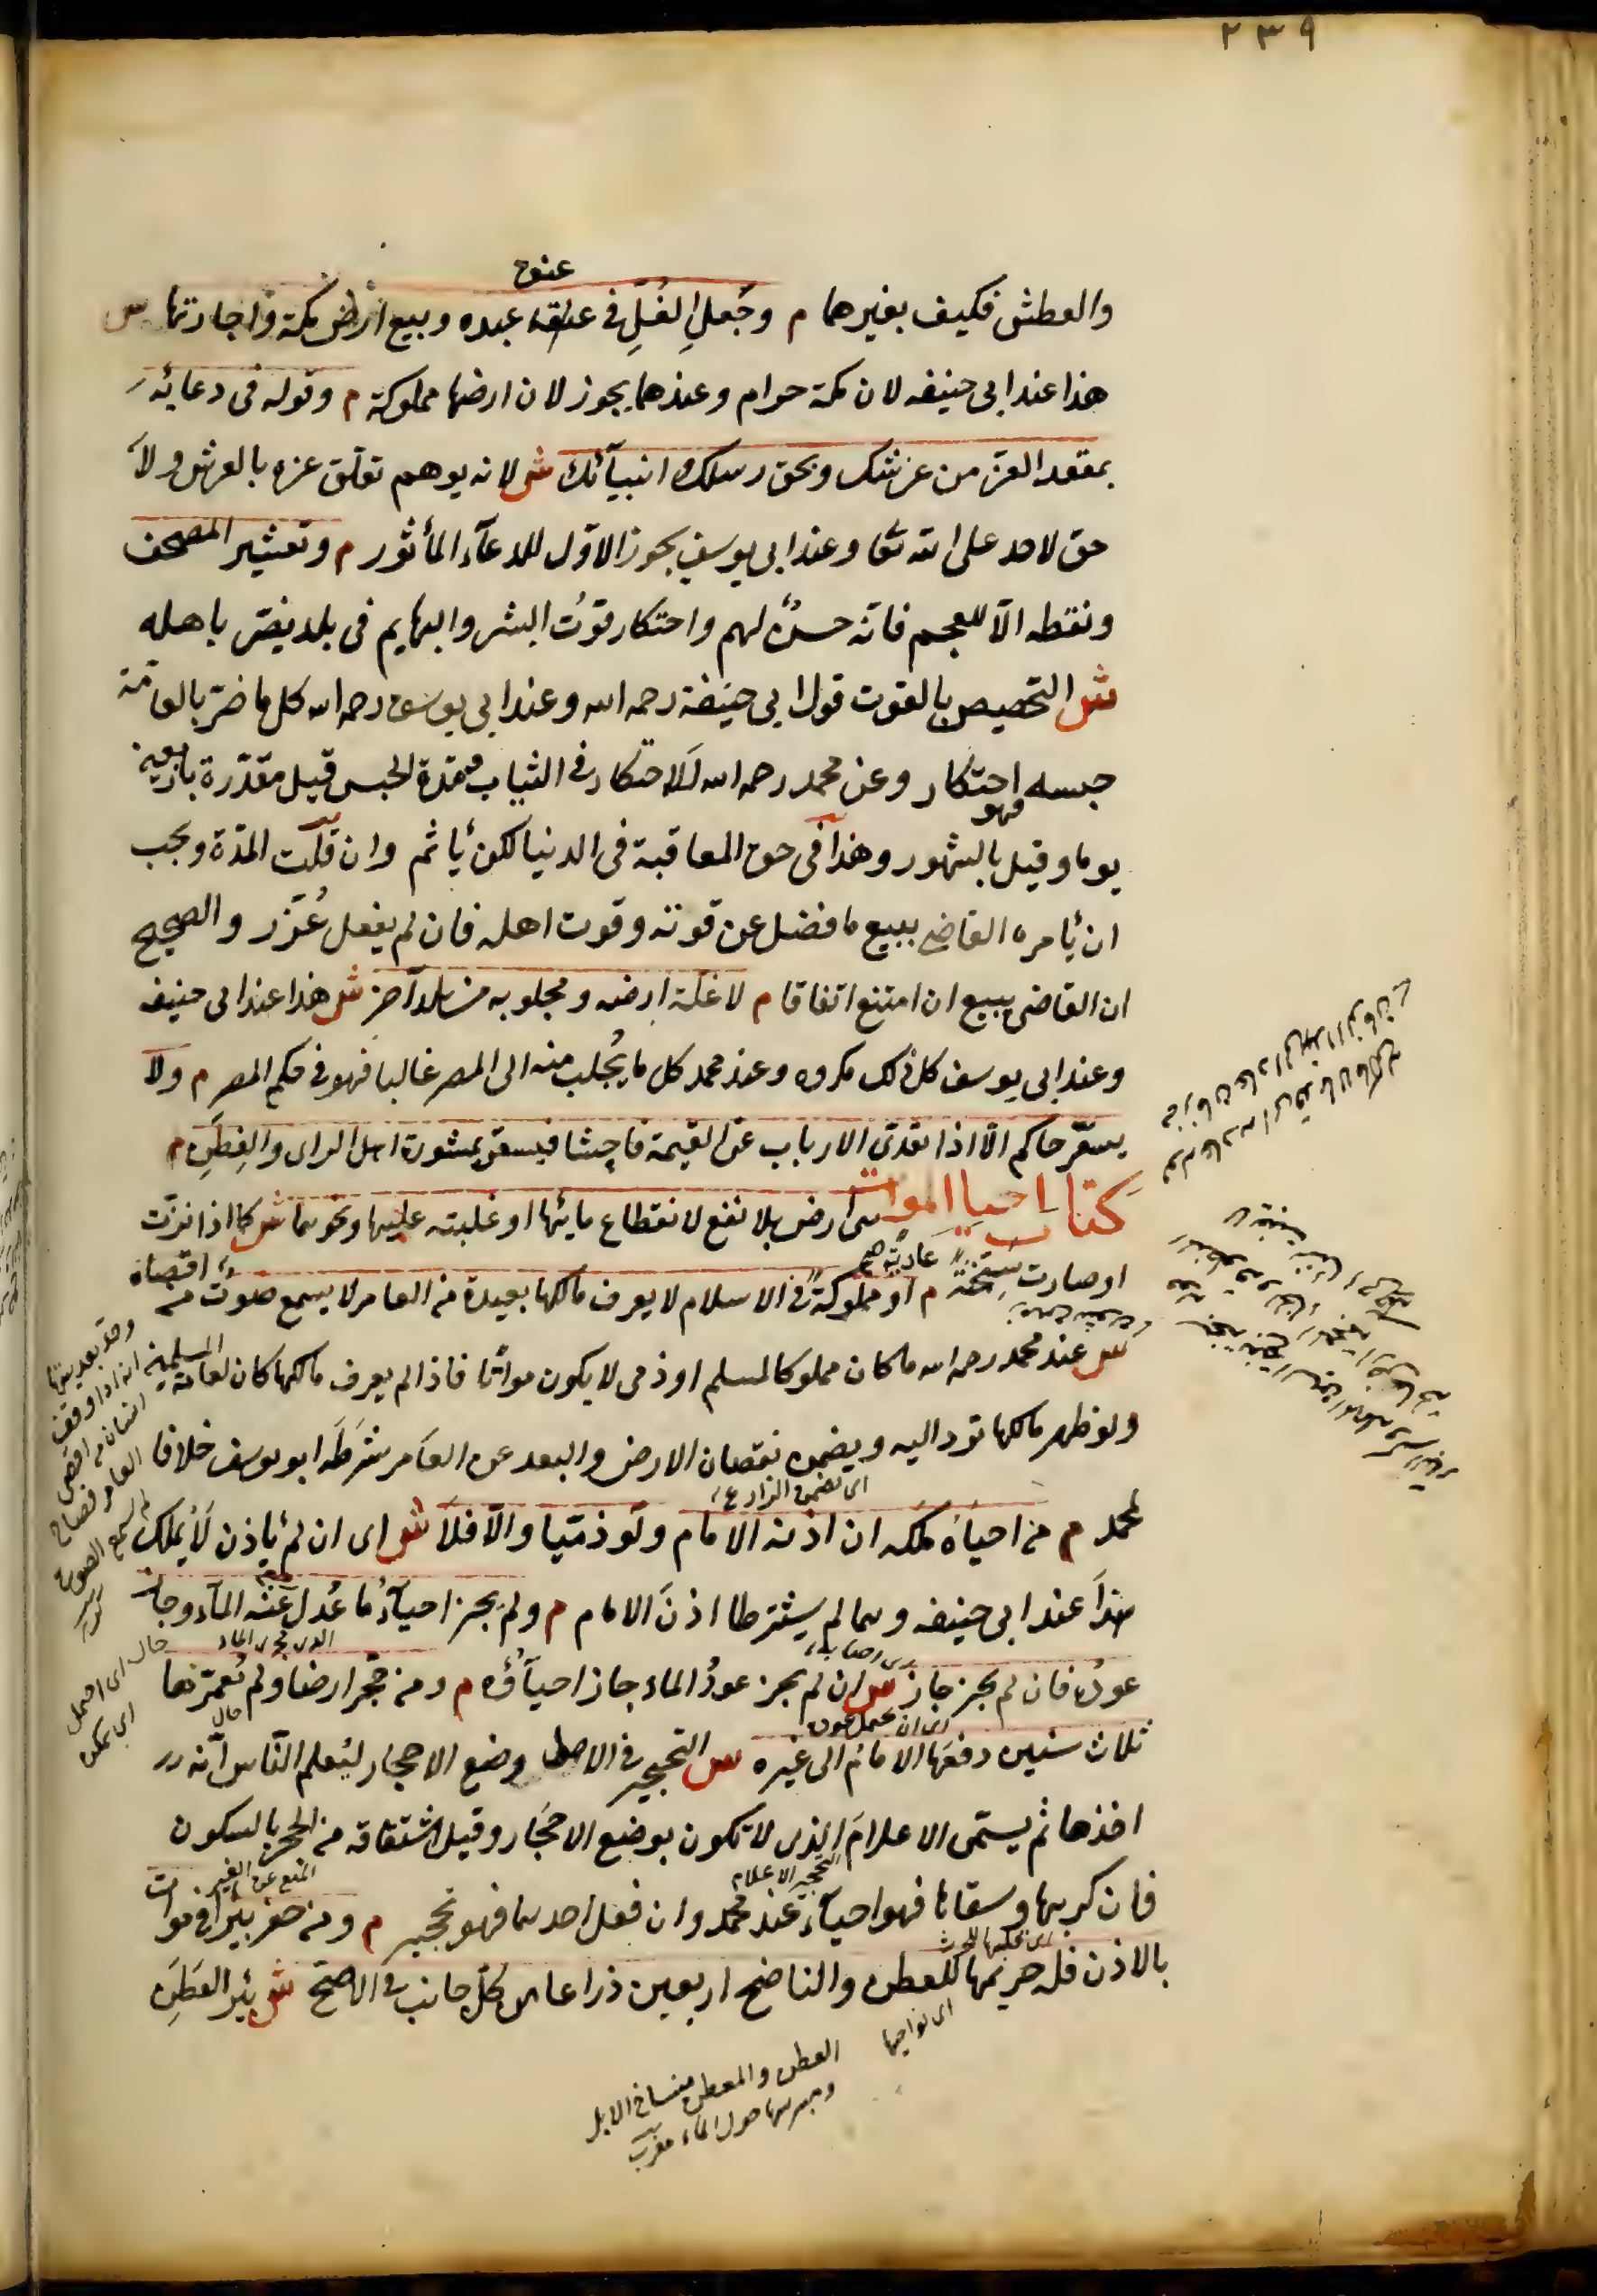 ٢٣٩
عنق
والعطش فكيف بغيرهما م وجعل الغل في عنق عبده وبيع ارض مكة واجارتها ش
هذا عند ابى حنيفه لان مكة حرام وعندهما يجوز لان ارضها مملوكة م وقوله فى دعائه
بمقعد العز من عرشك وبحق رسلك وانبيآئك ش لانه يوهم تعلق عزه بالعرش ولا
حق لاحد على الله تعا وعند ابى يوسف يجوز الاول للدعآء المأثور م وتعشير المصحف
ونقطه الا للعجم فانه حسن لهم واحتكار قوت البشر والبهايم فى بلد يضر باهله
ش التخصيص بالقوت قول ابى حنيفة رحمه الله وعند ابى يوسف رحمه الله كل ما ضر بالعامة
حبسه فهو احتكار وعن محمد رحمه الله لا احتكار فى الثياب ومدة الحبس قيل مقدرة باربعين
يوما وقيل بالشهور وهذا فى حق المعاقبة فى الدنيا لكن يأثم وان قلت المدة ويجب
ان يأمره القاضى ببيع ما فضل عن قوته وقوت اهله فان لم يفعل عزر والصحيح
ان القاضى يبيع ان امتنع اتفاقا م لا غلة ارضه ومجلوبه من بلد آخر ش هذا عند ابى حنيفه
وعند ابى يوسف كل ذلك مكروه وعند محمد كل ما يجلب منه الى المصر غالبا فهو فى حكم المصر م ولا
يسعر حاكم الا اذا تعدى الارباب عن القيمة فاحشا فيسعر بمشورة اهل الراى والفطن م
كتاب احيا الموات هى ارض بلا نفع لانقطاع مائها او غلبته عليها ونحوهما ش كما اذا نزت
او صارت سبخة م عادية او مملوكة فى الاسلام لا يعرف مالكها بعيدة من العامر لا يسمع صوت من اقصاه
ش عند محمد رحمه الله ما كان مملوكا لمسلم او ذمى لا يكون مواتا فاذا لم يعرف مالكها كان لعامة المسلمين
ولو ظهر مالكها ترد اليه ويضمن نقصان الارض والبعد عن العامر شرطه ابو يوسف خلافا
اى يضمن الزارع
لمحمد م من احياه ملكه ان اذن الامام ولو ذميا والا فلا ش اى ان لم يأذن لا يملك
هذا عند ابى حنيفه وهما لم يشترطا اذن الامام م ولم يجز احيآء ما عدل عنه المآء وجاز
عوده فان لم يجز جاز ش ان لم يجز عود الماء جاز احيآؤه م ومن حجر ارضا ولم يعمرها
ثلاث سنين دفعها الامام الى غيره ش التحجير فى الاصل وضع الاحجار ليعلم الناس انه
اخذها ثم يسمى الاعلام الذى لا يكون بوضع الاحجار وقيل اشتقاقه من الحجر بالسكون
التحجير الاعلام
المنع عن الغير
فان كربها وسقاها فهو احيآء عند محمد وان فعل احدهما فهو تحجير م ومن حفر بئرا فى موات
بالاذن فله حريمها للعطن والناضح اربعين ذراعا من كل جانب فى الاصح ش بئر العطن
اى نواحيها
العطن والمعطن مناخ الابل
ومبركها حول الماء مغرب